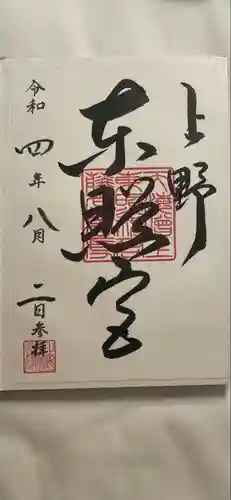 上野
東照宮
令和四年八月二日参拝